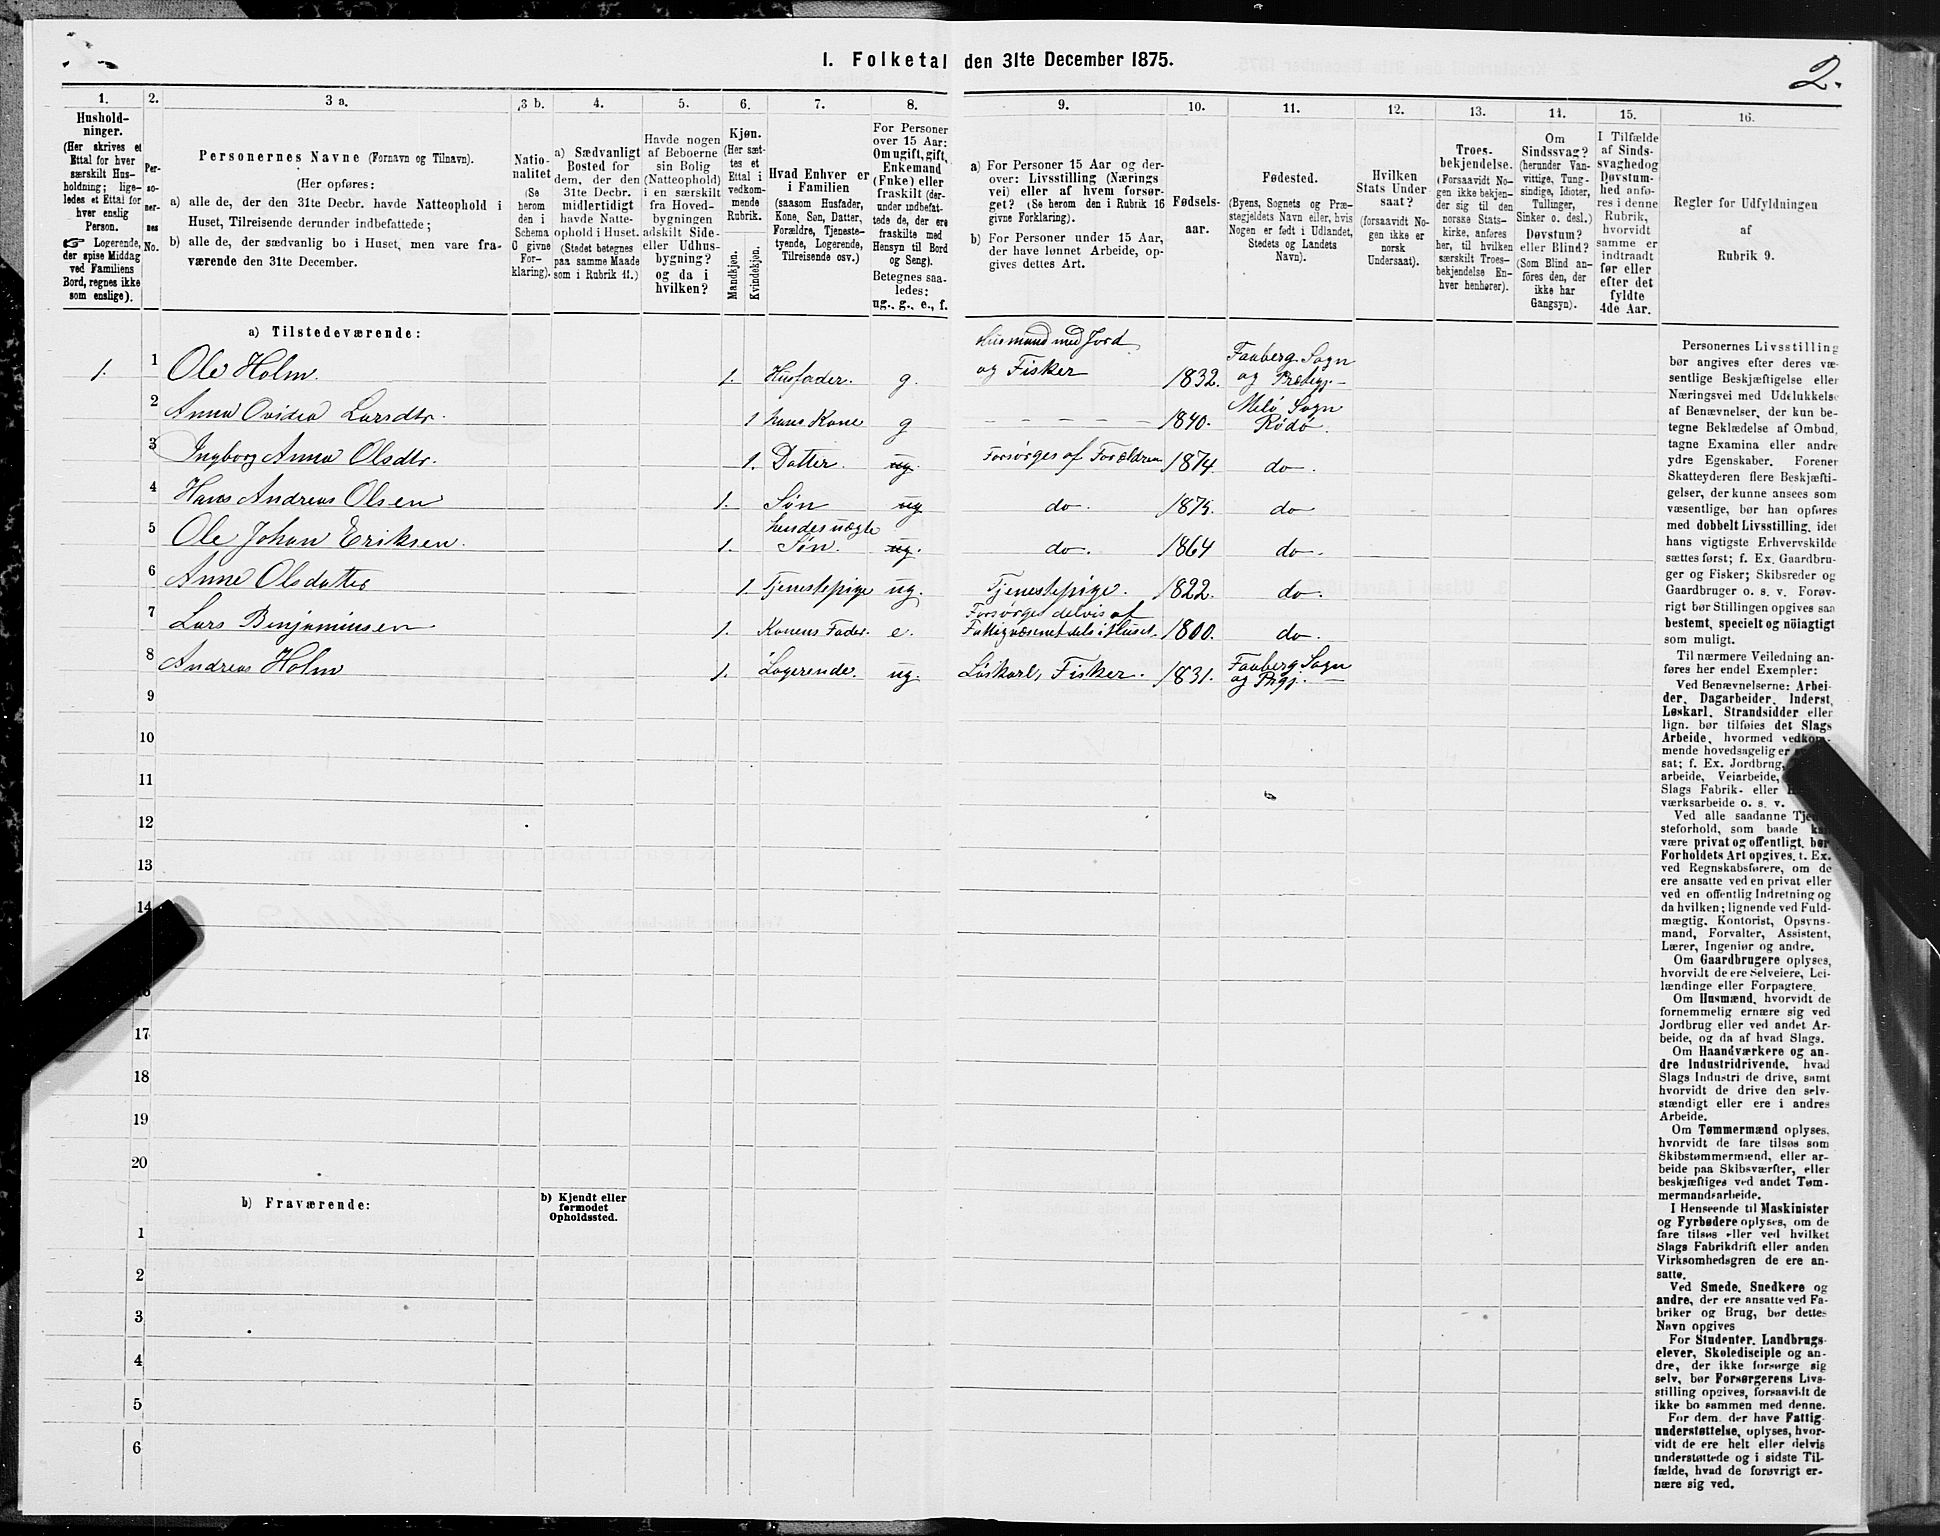 1. Folketal den 31te December 1875.
2.
1.
Hushold-
ninger.
(Her skrives et
Ettal for hver
særskilt Hus-
holdning; lige-
ledes et Ettal for
hver enslig
Person.
☞ Logerende,
der spise Middag
ved Familiens
Bord, regnes ikke
som enslige).
2.
Per-
so-
ner-
nes
No.
3 a.
Personernes Navne (Fornavn og Tilnavn).
(Her opføres:
a) alle de, der den 31te Decbr. havde Natteophold i
Huset, Tilreisende derunder indbefattede;
b) alle de, der sædvanlig bo i Huset, men vare fra-
værende den 31te December.
3 b.
Natio-
nalitet
(Se
herom
den i
Schema
O givne
For-
klaring).
4.
a) Sædvanligt
Bosted for
dem, der den
31te Decbr.
midlertidigt
havde Natte-
ophold i Huset.
(Stedet betegnes
paa samme Maade
som i Rubrik 11.)
5.
Havde nogen
af Beboerne
sin Bolig
(Natteophold)
i en særskilt
fra Hoved-
bygningen
adskilt Side-
eller Udhus-
bygning?
og da i
hvilken?
6.
Kjøn.
(Her sæt-
tes et
Ettal i
vedkom-
mende
Rubrik.
Mandkjøn.
Kvindekjøn.
7.
Hvad Enhver er
i Familien
(saasom Husfader,
Kone, Søn, Datter,
Forældre, Tjeneste-
tyende, Logerende,
Tilreisende osv.)
8.
For Personer
over 15 Aar:
Om ugift, gift,
Enkemand
(Enke) eller
fraskilt (der-
under indbefat-
tede de, der ere
fraskilte med
Hensyn til Bord
og Seng).
Betegnes saa-
ledes:
ug., g., e., f.
9.
a) For Personer 15 Aar og der-
over: Livsstilling (Nærings
vei) eller af hvem forsør-
get? (Se herom den i Rubrik 16
givne Forklaring).
b) For Personer under 15 Aar,
der have lønnet Arbeide, op-
gives dettes Art.
10.
Fødsels-
aar.
11.
Fødested.
(Byens, Sognets og Præ-
stegjeldets Navn eller, hvis
Nogen er født i Udlandet,
Stedets og Landets
Navn).
12.
Hvilken
Stats Under
saat?
(forsaavidt No-
gen ikke er
norsk
Undersaat).
13.
Troes-
bekjendelse.
(Forsaavidt No-
gen ikke bekjen-
der sig til den
norske Stats-
kirke, anføres
her, til hvilken
særskilt Troes-
bekjendelse En-
hver henhører).
14.
Om
Sindssvag?
(herunder Van-
vittige, Tung-
sindige, Idioter,
Tullinger,
Sinker o. desl.)
Døvstum?
eller Blind?
(Som Blind an-
føres den, der
ikke har
Gangsyn).
15.
I Tilfælde
af Sinds-
svaghed og
Døvstum-
hed anfø-
res i denne
Rubrik,
hvorvidt
samme er
indtraadt
før eller
efter det
fyldte
4de Aar.
16.
Regler for Udfyldningen
af
Rubrik 9.
a) Tilstedeværende:
1. 1 Ole Holm. 1. Husfader. g. Husmand med Jord og Fisker 1832. Faaberg Sogn og Præstegj.
2 Anna Ovidea Larsdtr. 1 hans Kone g – – – – – 1840. Melø Sogn Rødø.
3 Ingborg Anna Olsdtr. 1. Datter. ug. Forsørges af Forældren 1874 do.
4 Hans Andreas Olsen 1. Søn ug do. 1875. do
5 Ole Johan Eriksen. 1. hendes uægte Søn. ug. do. 1864 do.
6 Anne Olsdatter 1. Tjenestepige ug. Tjenestepige. 1822. do.
7 Lars Benjaminsen 1. Konens Fader. e. Forsørges delvis af Fattigvæsenet dels i Huset. 1800. do.
8 Andreas Holm 1. Logerende. ug. Løskarl, Fisker. 1831. Faaberg Sogn og Prgj.
9
10
11
12
13
14
17
18
19
20
b) Fraværende:
b) Kjendt eller
formodet
Opholdssted.
1
2
3
4
5
6
Personernes Livsstilling
bør angives efter deres væ-
sentlige Beskjæftigelse eller
Næringsvei med Udelukkelse
af Benævnelser, der kun be-
tegne Beklædelse af Ombud,
tagne Examina eller andre
ydre Egenskaber. Forener
Skatteyderen flere Beskjæfti-
gelser, der kunne ansees som
væsentlige, bør han opføres
med dobbelt Livsstilling, idet
hans vigtigste Erhvervskilde
sættes først; f. Ex. Gaardbru-
ger og Fisker; Skibsreder og
Gaardbruger o. s. v. Forøv-
rigt bør Stillingen opgives saa
bestemt, specielt og nöiagtigt
som muligt.
Til nærmere Veiledning an-
føres her endel Exempler:
Ved Benævnelserne: Arbei-
der, Dagarbeider, Inderst,
Løskarl, Strandsidder eller
lign. bør tilføies det Slags
Arbeide, hvormed vedkom-
mende hovedsagelig er
sat; f. Ex. Jordbrug,
arbeide, Veiarbeide,
Slags Fabrik- eller
værksarbeide o. s. v.
Ved alle saadanne Tjene-
steforhold, som baade kan
være privat og offentligt, bør
Forholdets Art opgives, t. Ex.
ved Regnskabsførere, om de
ere ansatte ved en privat eller
ved en offentlig Indretning og
da hvilken; lignende ved Fuld-
mægtig, Kontorist, Opsyns-
mand, Forvalter, Assistent,
Lærer, Ingeniør og andre.
Om Gaardbrugere oplyses,
hvorvidt de ere Selveiere, Lei-
lændinge eller Forpagtere.
Om Husmænd, hvorvidt de
fornemmelig ernære sig ved
Jordbrug eller ved andet Ar-
beide, og da af hvad Slags.
Om Haandværkere og an-
dre Industridrivende, hvad
Slags Industri de drive, samt
hvorvidt de drive den selv-
stændigt eller ere i andres
Arbeide.
Om Tømmermænd oplyses,
hvorvidt de fare tilsøs som
Skibstømmermænd, eller ar-
beide paa Skibsværfter, eller
beskjæftiges ved andet Tøm-
mermandsarbeide.
I Henseende til Maskinister
og Fyrbødere oplyses, om de
fare tilsøs eller ved hvilket
Slags Fabrikdrift eller anden
Virksomhedsgren de ere an-
satte.
Ved Smede, Snedkere og
andre, der ere ansatte ved Fa-
briker og Brug, bør dettes
Navn opgives
For Studenter, Landbrugs-
elever, Skoledisciple og an-
dre, der ikke forsørge sig
selv, bør Forsørgerens Livs-
stilling opgives, forsaavidt de
ikke bo sammen med denne.
For dem, der have Fattig-
understøttelse, oplyses, hvor-
vidt de ere helt eller delvis
understøttede og i sidste Til-
fælde, hvad de forøvrigt er-
nære sig ved.